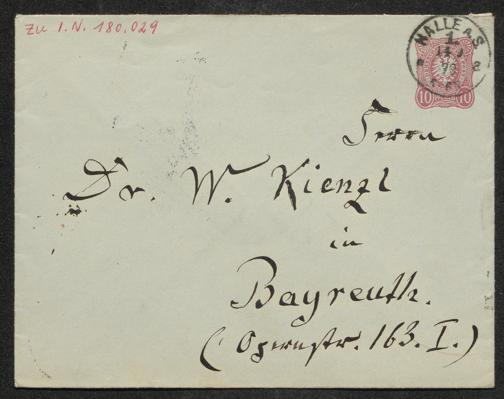 Zu I.N. 180.029
HALLE A.S
1.
79
10 10
Herrn
Dr. W. Kienzl
in
Bayreuth.
(Opernstr. 163. I.)